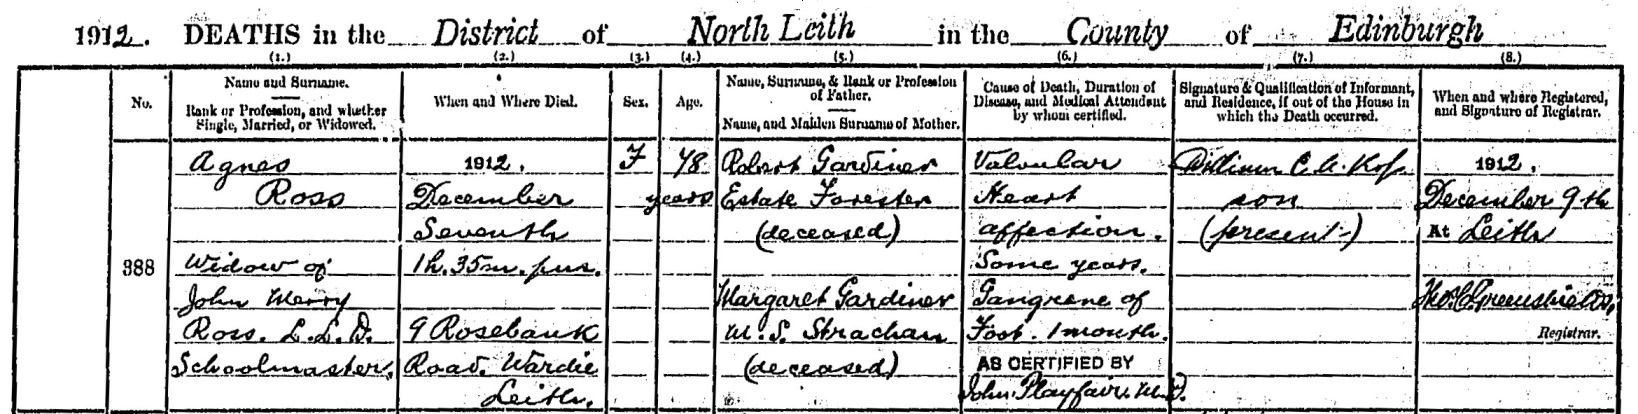 1912. DEATHS in the District of North Leith in the County of Edinburgh
(1.) (2.) (3.) (4.) (5.) (6.) (7.) (8.)
No.
Name and Surname.
Rank or Profession, and whether
Single, Married, or Widowed.
When and Where Died.
Sex.
Age.
Name, Surname, & Rank or Profession
of Father.
Name, and Maiden Surname of Mother.
Cause of Death, Duration of
Disease, and Medical Attendant
by whom certified.
Signature & Qualification of Informant,
and Residence, if out of the House in
which the Death occurred.
When and where Registered,
and Signature of Registrar.
388
Agnes
Ross
Widow of
John Merry
Ross. L.L.D.
Schoolmaster,
1912.
December
Seventh
1h. 35m. p.m.
9 Rosebank
Road. Wardie
Leith.
F
78
years
Robert Gardiner
Estate Forester
(deceased)
Margaret Gardiner
M.S. Strachan
(deceased)
Valvular
Heart
affection.
Some years.
Gangrene of
Foot. 1 month.
AS CERTIFIED BY
John Playfair M.D.
William C. A. Ross
son
(present)
1912.
December 9th
At Leith
Registrar.